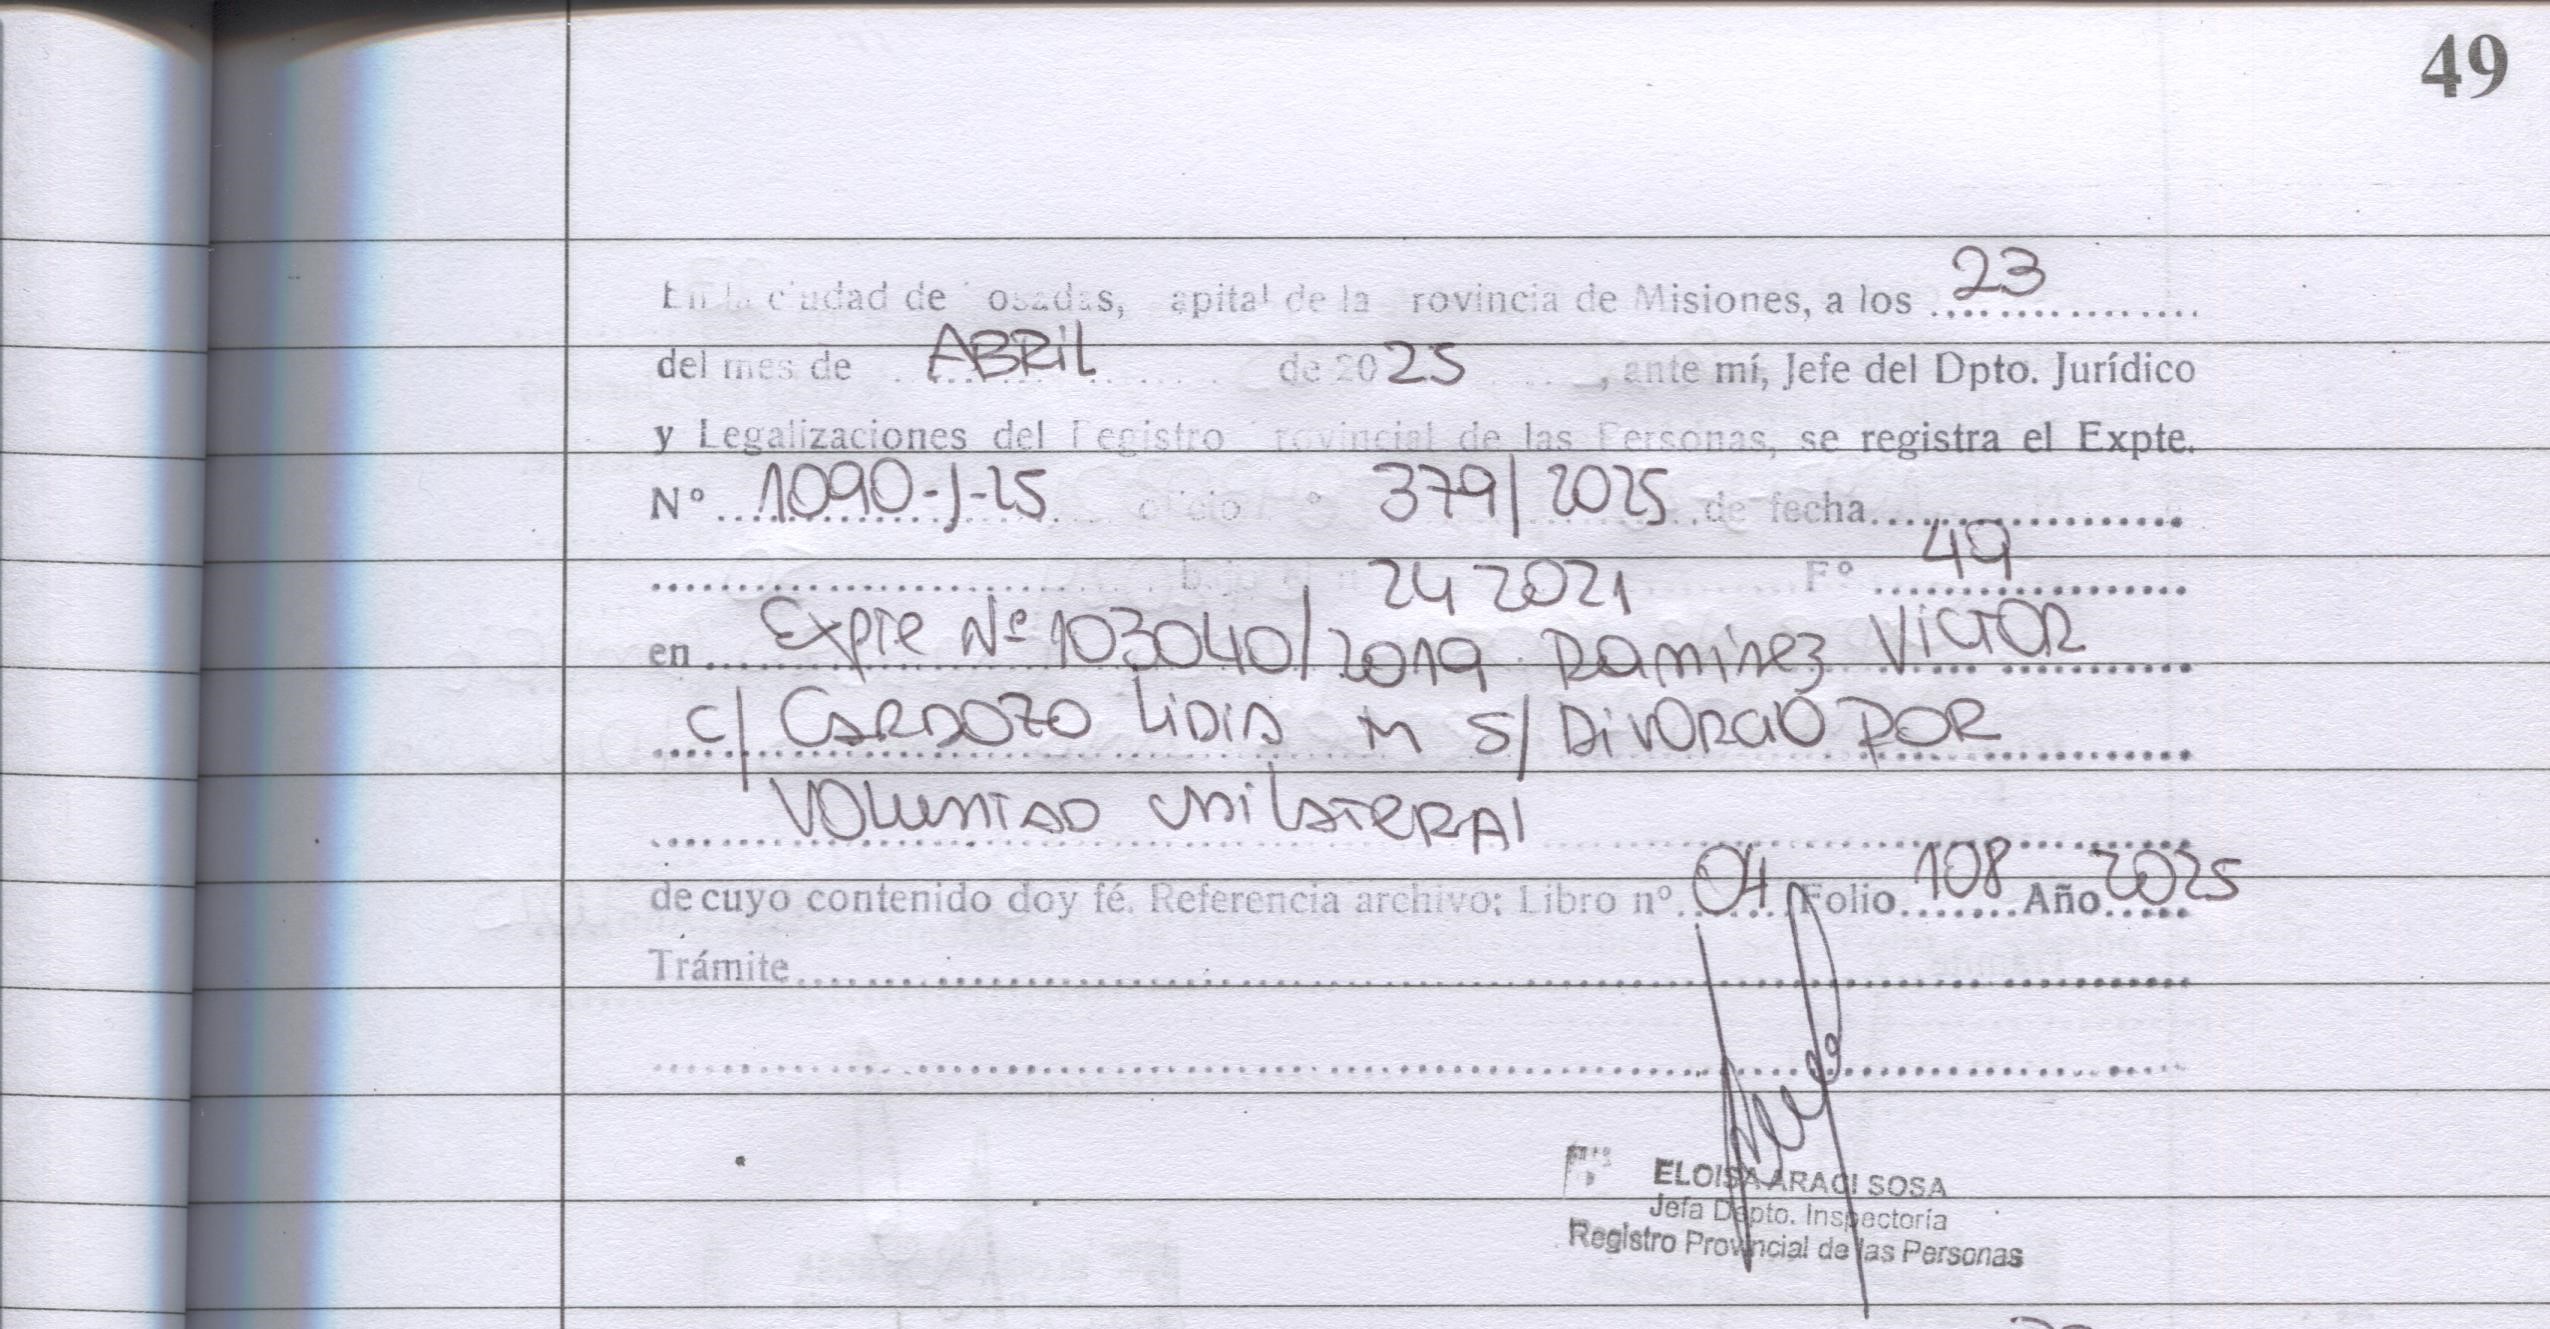 49
En la ciudad de Posadas, Capital de la Provincia de Misiones, a los 23
del mes de ABRIL de 2025, ante mí, Jefe del Dpto. Jurídico
y Legalizaciones del Registro Provincial de las Personas, se registra el Expte.
N° 1090-J-25 oficio n° 379/2025 de fecha
bajo el n° 24 2021 F° 49
en Expte Nº 103040/2019 Ramirez VICTOR
c/ CARDOZO LIDIA M S/ DIVORCIO POR
VOLUNTAD UNILATERAL
de cuyo contenido doy fé. Referencia archivo: Libro nº 04 Folio 108 Año 2025
Trámite
ELOISA ARACI SOSA
Jefa Depto. Inspectoría
Registro Provincial de las Personas